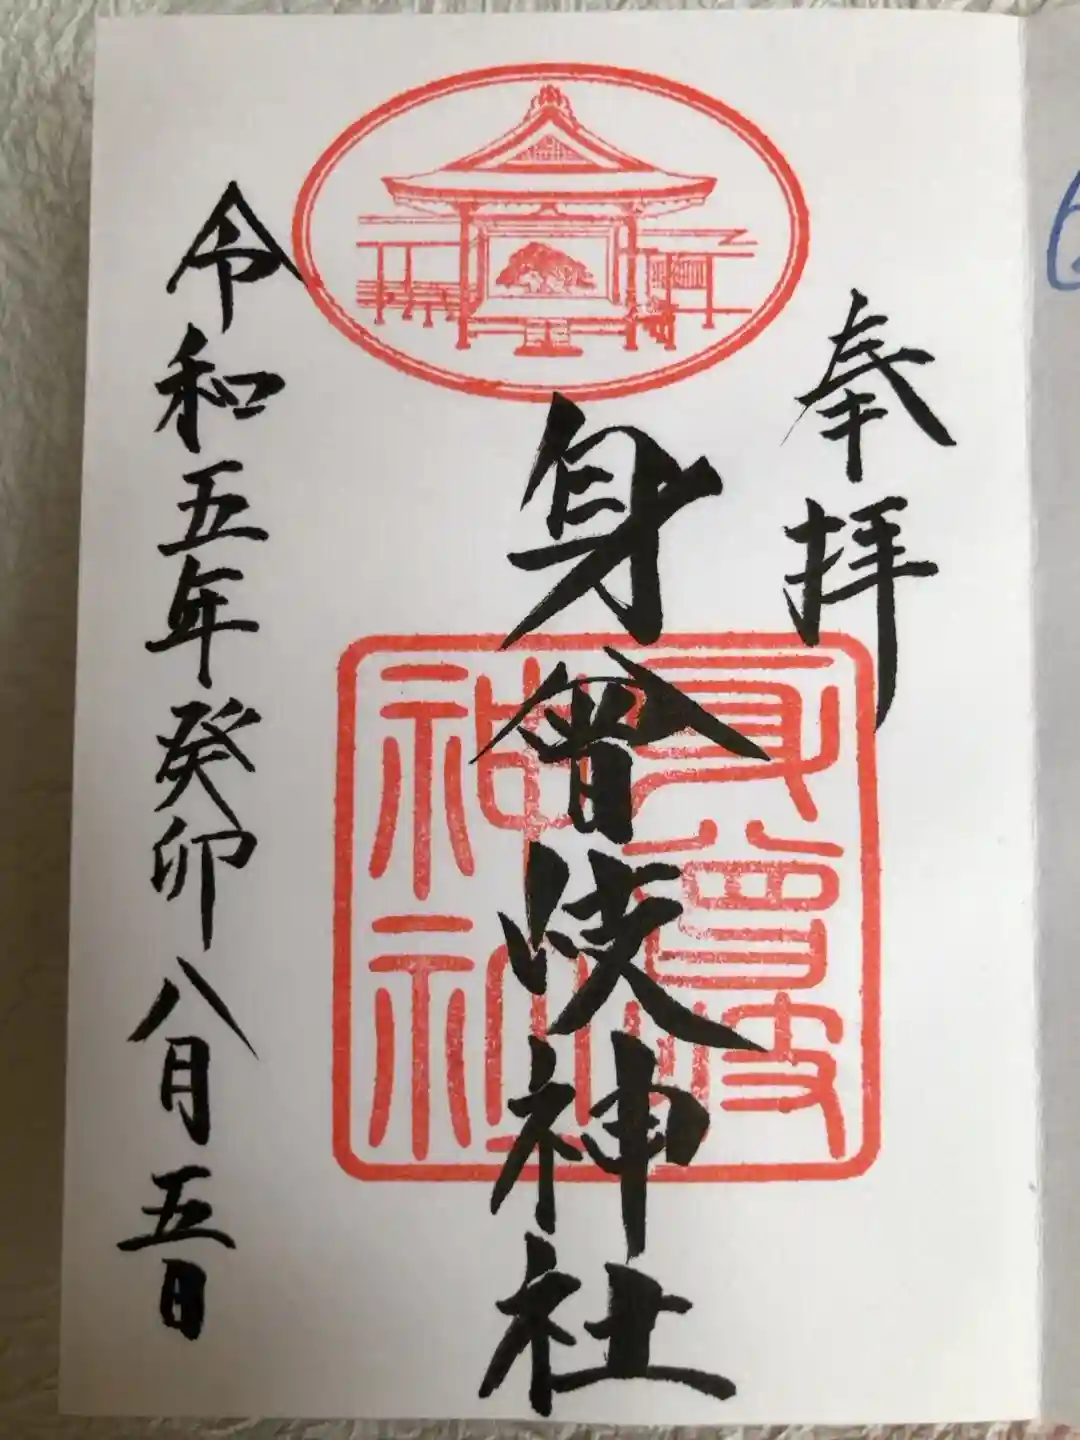 奉拝
身曾岐神社
身曾岐神社
令和五年癸卯八月五日